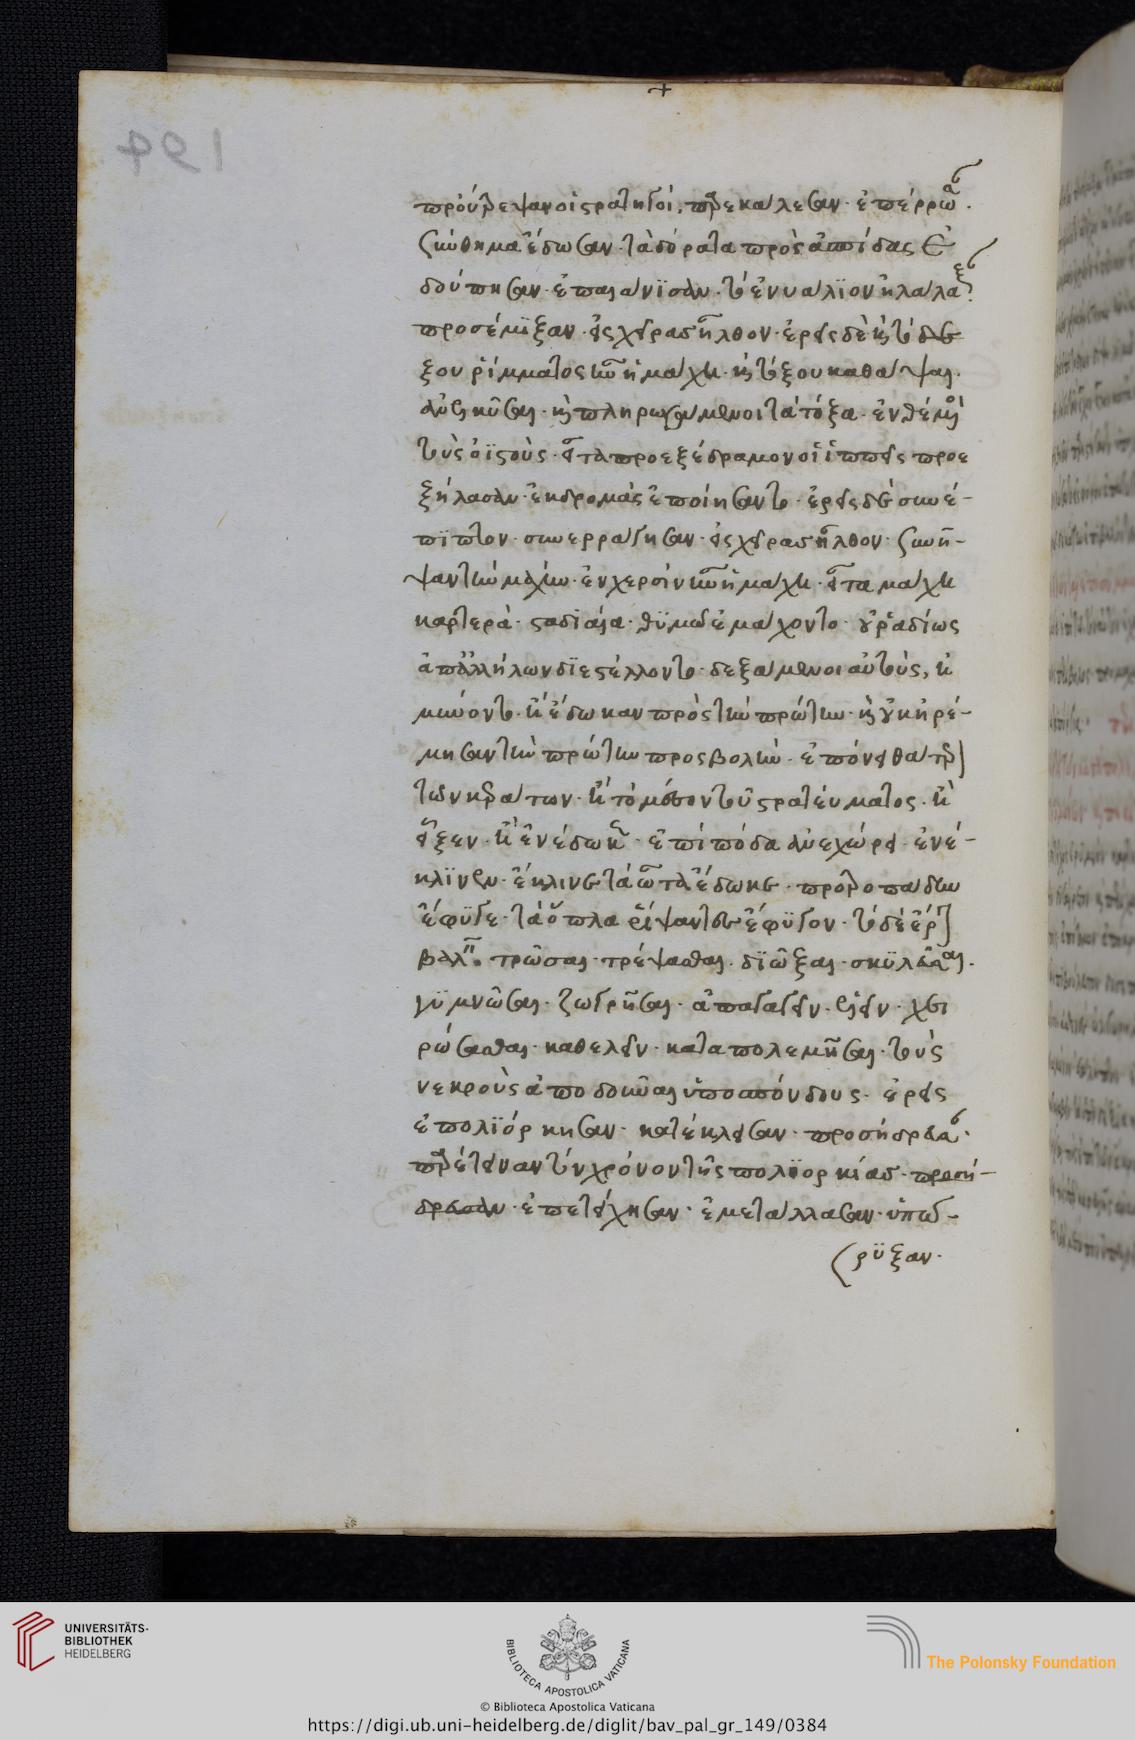 προύτρεψαν οἱ στρατηγοί. παρεκάλεσαν. ἐπέρρωσαν.
ξύνθημα ἔδωσαν. τὰ δόρατα πρὸς ἀσπίδας ἐ
δούπησαν. ἐπαιάνϊσαν. τὸ ἐνυάλϊον ἠλάλαξαν.
προσέμϊξαν. εἰς χεῖρας ἦλθον. ἐρεῖς δὲ καὶ τό δὲ
ξου ῥίμματος ἦν ἡ μάχη. καὶ τόξου καθάψαι.
λῦσαι κῦσαι. καὶ πληρωσάμενοι τὰ τόξα. ἐνθέμενοι
τοὺς ὀϊστοὺς. εἶτα προεξέδραμον οἱ ἱππεῖς προε
ξήλασαν. ἐκδρομὰς ἐποίησαντο. ἐρεῖς δὲ συνέ-
πϊπτον. συνερράγησαν. εἰς χεῖρας ἦλθον. ξυνῆ-
ψαν τὴν μάχην. ἐν χερσὶν ἦν ἡ μάχη. εἶτα μάχη
καρτερὰ. σταδιαία. θϋμῶ ἐμάχοντο. οὐ ῥαδίως
ἀπ' ἀλλήλων δϊεστέλλοντο. δεξάμενοι αὐτοὺς, καὶ
μύνοντο. καὶ ἔδωκαν πρὸς τὴν πρώτην. καὶ οὐκ ἠρέ-
μησαν τὴν πρώτην προσβολὴν. ἐπόνει θάτερον
τῶν κεράτων. καὶ τὸ μέσον τοῦ στρατεύματος. καὶ
εἶξεν. καὶ ἐνέδωκεν. ἐπὶ πόδα ἀνεχώρει. ἐνέ-
κλϊνεν. ἔκλινε τὰ ὦτα ἔδωκε. προτροπάδην
ἔφϋγε. τὰ ὅπλα ῥίψαντες ἔφϋγον. τὸ δὲ ἕτερον
βαλεῖν. τρῶσαι. τρέψασθαι. δϊῶξαι. σκϋλεῦσαι.
γϋμνῶσαι. ζωγρῆσαι. ἀπαγαγεῖν. ἑλεῖν. χει
ρώσασθαι. καθελεῖν. καταπολεμῆσαι. τοὺς
νεκροὺς ἀποδοῦναι ὑποσπόνδους. ἐρεῖς
ἐπολϊόρκησαν. κατέκλεισαν. προσήδρευσαν.
παρέτειναν τὸν χρόνον τῆς πολϊορκίας. προσή-
δρευσαν. ἐπετείχησαν. ἐμετάλλασαν. ὑπώ-
ρϋξαν.
UNIVERSITÄTS-
BIBLIOTHEK
HEIDELBERG
BIBLIOTECA APOSTOLICA VATICANA
The Polonsky Foundation
© Biblioteca Apostolica Vaticana
https://digi.ub.uni-heidelberg.de/diglit/bav_pal_gr_149/0384